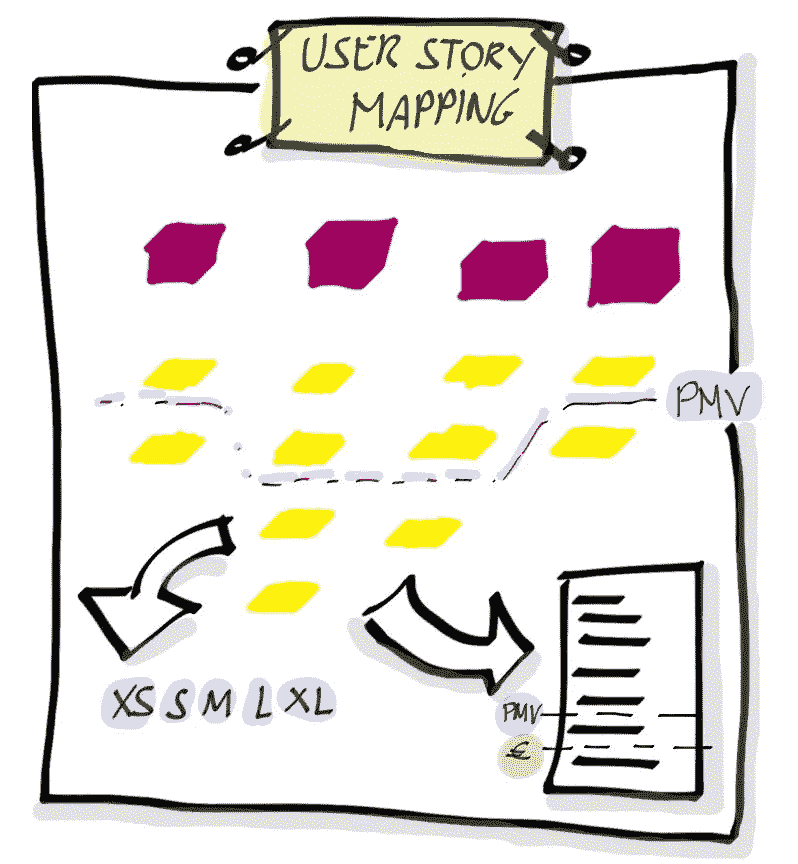 USER STORY
MAPPING
PMV
XS S M L XL
PMV
€